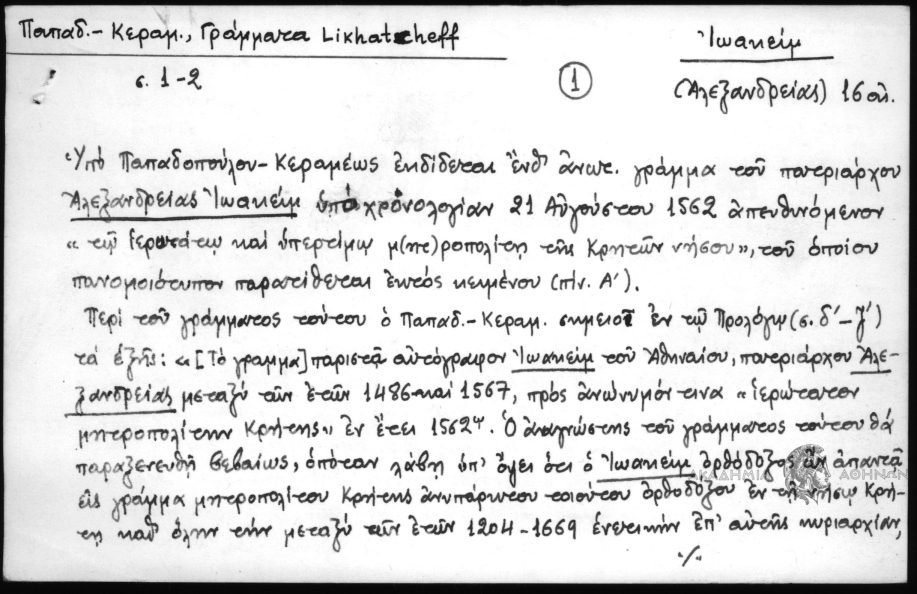 Παπαδ.-Κεραμ., Γράμματα Likhatscheff
Ἰωακείμ
σ. 1-2
1
(Ἀλεξανδρείας) 16 αἰ.
Ὑπὸ Παπαδοπούλου-Κεραμέως ἐκδίδεται ἔνθ' ἀνωτ. γράμμα τοῦ πατριάρχου
Ἀλεξανδρείας Ἰωακείμ ὑπὸ χρονολογίαν 21 Αὐγούστου 1562 ἀπευθυνόμενον
« τῷ ἱερωτάτῳ καὶ ὑπερτίμῳ μ(ητ)ροπολίτῃ τῆς Κρητῶν νήσου», τοῦ ὁποίου
πανομοιότυπον παρατίθεται ἐκτός κειμένου (πίν. Α').
Περὶ τοῦ γράμματος τούτου ὁ Παπαδ.-Κεραμ. σημειοῖ ἐν τῷ Προλόγῳ (σ. δ'-ζ')
τὰ ἑξῆς: «[Τὸ γράμμα] παριστᾷ αὐτόγραφον Ἰωακείμ τοῦ Ἀθηναίου, πατριάρχου Ἀλε-
ξανδρείας μεταξὺ τῶν ἐτῶν 1486 καὶ 1567, πρὸς ἀνώνυμόν τινα « ἱερώτατον
μητροπολίτην Κρήτης» ἐν ἔτει 1562ῳ. Ὁ ἀναγνώστης τοῦ γράμματος τούτου θὰ
παραξενευθῇ βεβαίως, ὁπόταν λάβῃ ὑπ' ὄψει ὅτι ὁ Ἰωακείμ ὀρθόδοξος ὢν ἀπαντᾷ
εἰς γράμμα μητροπολίτου Κρήτης ἀνυπάρκτου τοιούτου ὀρθοδόξου ἐν τῇ νήσῳ Κρή-
τῃ καθ' ὅλην τὴν μεταξὺ τῶν ἐτῶν 1204-1669 ἑνετικὴν ἐπ' αὐτῆς κυριαρχίαν,
./.
ΑΚΑΔΗΜΙΑ ΑΘΗΝΩΝ